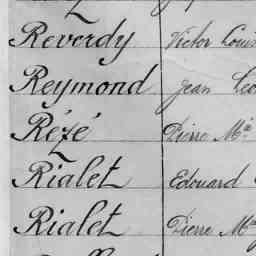 Reverdy Victor Louis
Reymond Jean Leo
Rézé Pierre Mie
Rialet Edouard
Rialet Pierre Ma